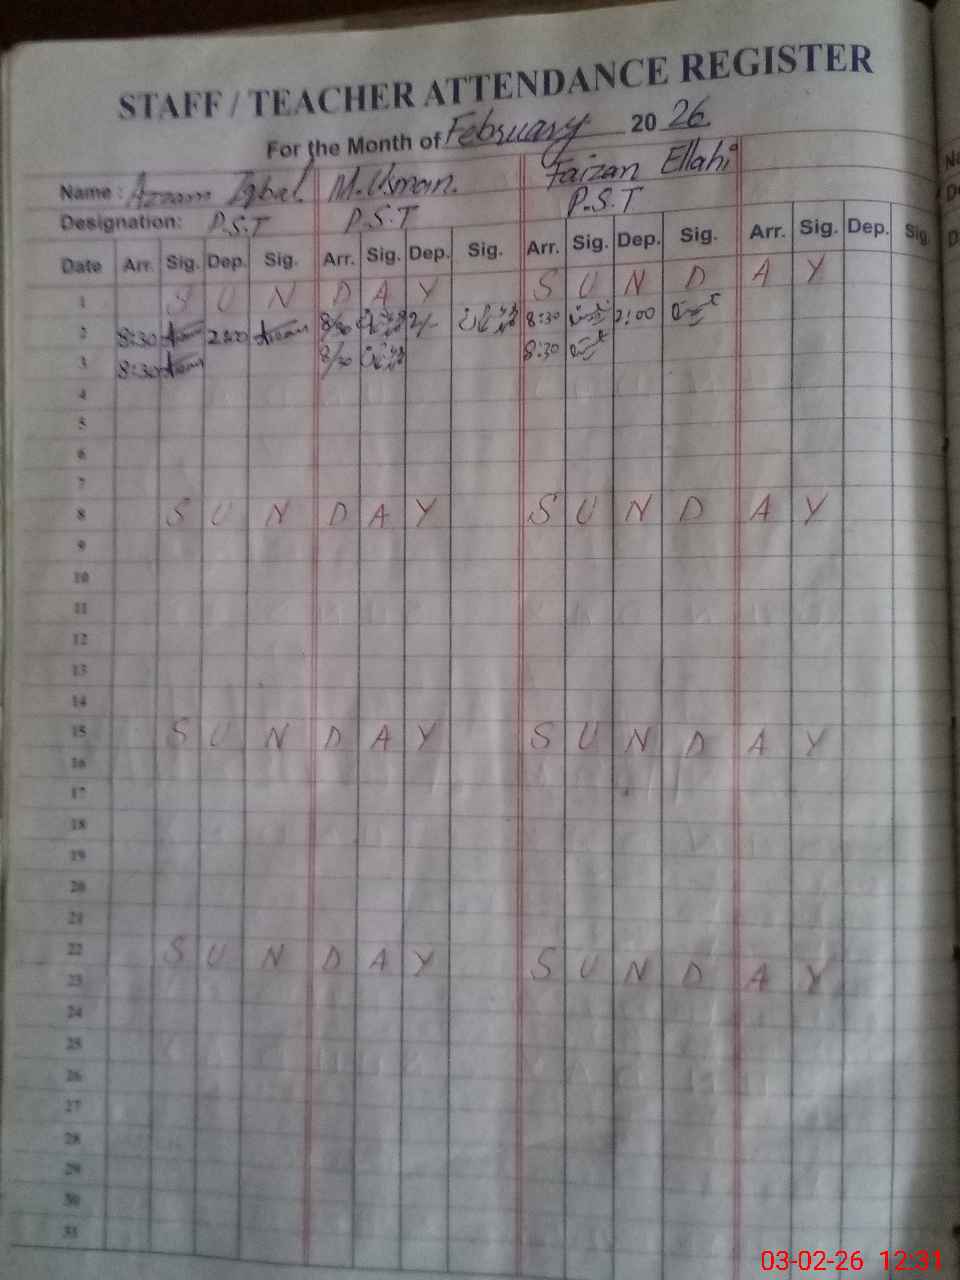 STAFF / TEACHER ATTENDANCE REGISTER
For the Month of February 2026
Name : Azaam Iqbal M. Usman. Faizan Ellahi
Designation: P.S.T P.S.T P.S.T
Date Arr. Sig. Dep. Sig. Arr. Sig. Dep. Sig. Arr. Sig. Dep. Sig. Arr. Sig. Dep. Sig.
1 S U N D A Y S U N D A Y
2 8:30 2:00 8/30 2/- 8:30 2:00
3 8:30 8/30 8:30
4
5
6
7
8 S U N D A Y S U N D A Y
9
10
11
12
13
14
15 S U N D A Y S U N D A Y
16
17
18
19
20
21
22 S U N D A Y S U N D A Y
23
24
25
26
27
28
29
30
31
03-02-26 12:31